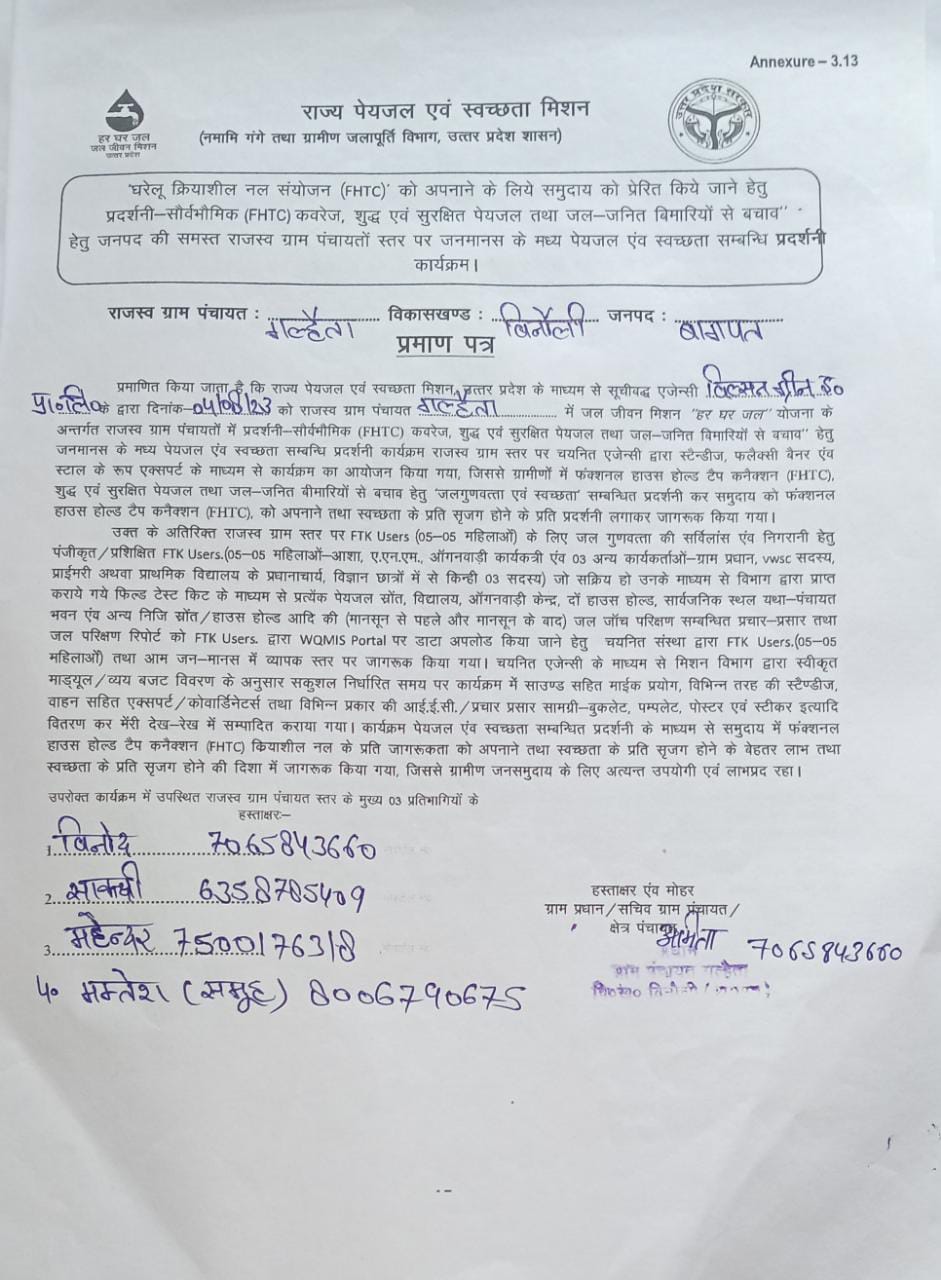 Annexure – 3.13
राज्य पेयजल एवं स्वच्छता मिशन
(नमामि गंगे तथा ग्रामीण जलापूर्ति विभाग, उत्तर प्रदेश शासन)
हर घर जल
जल जीवन मिशन
उत्तर प्रदेश
उत्तर प्रदेश सरकार
'घरेलू क्रियाशील नल संयोजन (FHTC)' को अपनाने के लिये समुदाय को प्रेरित किये जाने हेतु
प्रदर्शनी–सौर्वभौमिक (FHTC) कवरेज, शुद्ध एवं सुरक्षित पेयजल तथा जल–जनित बिमारियों से बचाव"
हेतु जनपद की समस्त राजस्व ग्राम पंचायतों स्तर पर जनमानस के मध्य पेयजल एंव स्वच्छता सम्बन्धि प्रदर्शनी
कार्यक्रम।
राजस्व ग्राम पंचायत : गल्हैता विकासखण्ड : बिनौली जनपद : बागपत
प्रमाण पत्र
प्रमाणित किया जाता है कि राज्य पेयजल एवं स्वच्छता मिशन, उत्तर प्रदेश के माध्यम से सूचीवद्ध एजेन्सी विल्सन ग्रीन इ०
प्रा०लि० के द्वारा दिनांक–04/08/23 को राजस्व ग्राम पंचायत गल्हैता में जल जीवन मिशन "हर घर जल" योजना के
अन्तर्गत राजस्व ग्राम पंचायतों में प्रदर्शनी–सौर्वभौमिक (FHTC) कवरेज, शुद्ध एवं सुरक्षित पेयजल तथा जल–जनित बिमारियों से बचाव" हेतु
जनमानस के मध्य पेयजल एंव स्वच्छता सम्बन्धि प्रदर्शनी कार्यक्रम राजस्व ग्राम स्तर पर चयनित एजेन्सी द्वारा स्टैन्डीज, फलैक्सी बैनर एंव
स्टाल के रूप एक्सपर्ट के माध्यम से कार्यक्रम का आयोजन किया गया, जिससे ग्रामीणों में फंक्शनल हाउस होल्ड टैप कनैक्शन (FHTC),
शुद्ध एवं सुरक्षित पेयजल तथा जल–जनित बीमारियों से बचाव हेतु 'जलगुणवत्ता एवं स्वच्छता' सम्बन्धित प्रदर्शनी कर समुदाय को फंक्शनल
हाउस होल्ड टैप कनैक्शन (FHTC), को अपनाने तथा स्वच्छता के प्रति सृजग होने के प्रति प्रदर्शनी लगाकर जागरूक किया गया।
उक्त के अतिरिक्त राजस्व ग्राम स्तर पर FTK Users (05–05 महिलाओं) के लिए जल गुणवत्ता की सर्विलांस एंव निगरानी हेतु
पंजीकृत/प्रशिक्षित FTK Users.(05–05 महिलाओं–आशा, ए.एन.एम., ऑगनवाड़ी कार्यकत्री एंव 03 अन्य कार्यकर्ताओं–ग्राम प्रधान, vwsc सदस्य,
प्राईमरी अथवा प्राथमिक विद्यालय के प्रधानाचार्य, विज्ञान छात्रों में से किन्ही 03 सदस्य) जो सक्रिय हो उनके माध्यम से विभाग द्वारा प्राप्त
कराये गये फिल्ड टेस्ट किट के माध्यम से प्रत्यंेक पेयजल स्रोंत, विद्यालय, ऑगनवाड़ी केन्द्र, दों हाउस होल्ड, सार्वजनिक स्थल यथा–पंचायत
भवन एंव अन्य निजि स्रोंत/हाउस होल्ड आदि की (मानसून से पहले और मानसून के बाद) जल जॉच परिक्षण सम्बन्धित प्रचार–प्रसार तथा
जल परिक्षण रिपोर्ट को FTK Users. द्वारा WQMIS Portal पर डाटा अपलोड किया जाने हेतु चयनित संस्था द्वारा FTK Users.(05–05
महिलाओं) तथा आम जन–मानस में व्यापक स्तर पर जागरूक किया गया। चयनित एजेन्सी के माध्यम से मिशन विभाग द्वारा स्वीकृत
माड्यूल/व्यय बजट विवरण के अनुसार सकुशल निर्धारित समय पर कार्यक्रम में साउण्ड सहित माईक प्रयोग, विभिन्न तरह की स्टैण्डीज,
वाहन सहित एक्सपर्ट/कोवार्डिनेटर्स तथा विभिन्न प्रकार की आई.ई.सी./प्रचार प्रसार सामग्री–बुकलेट, पम्पलेट, पोस्टर एवं स्टीकर इत्यादि
वितरण कर मेंरी देख–रेख में सम्पादित कराया गया। कार्यक्रम पेयजल एंव स्वच्छता सम्बन्धित प्रदर्शनी के माध्यम से समुदाय में फंक्शनल
हाउस होल्ड टैप कनैक्शन (FHTC) कियाशील नल के प्रति जागरूकता को अपनाने तथा स्वच्छता के प्रति सृजग होने के बेहतर लाभ तथा
स्वच्छता के प्रति सृजग होने की दिशा में जागरूक किया गया, जिससे ग्रामीण जनसमुदाय के लिए अत्यन्त उपयोगी एवं लाभप्रद रहा।
उपरोक्त कार्यक्रम में उपस्थित राजस्व ग्राम पंचायत स्तर के मुख्य 03 प्रतिभागियों के
हस्ताक्षरः–
1. विनोद 7065843660
2. साक्षी 6358785409
3. महेन्दर 7500176318
4० ममतेश (समूह) 8006790675
हस्ताक्षर एंव मोहर
ग्राम प्रधान/सचिव ग्राम पंचायत/
क्षेत्र पंचायत
अमीता 7065843660
प्रधान
ग्राम पंचायत गल्हैता
वि०ख० बिनौली